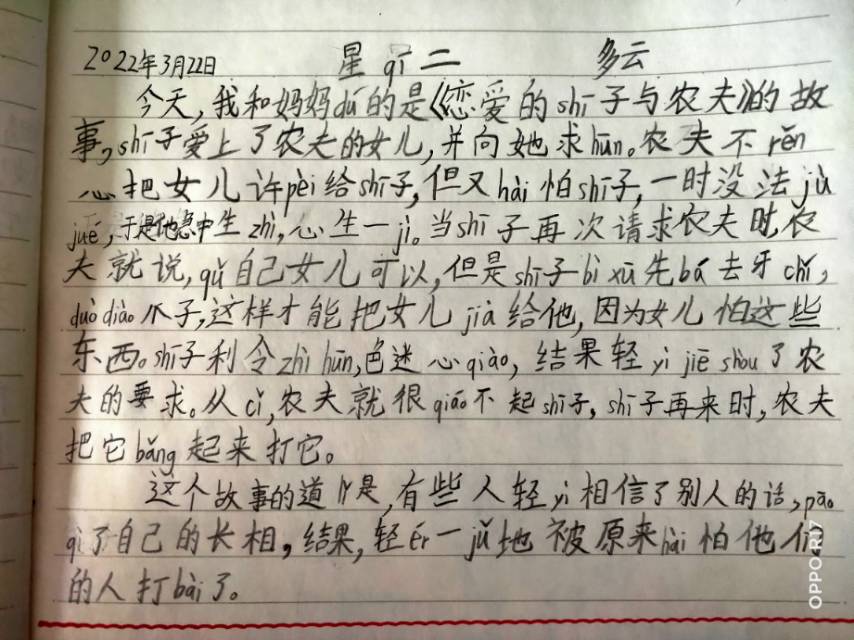 2022年3月22日 星qī二 多云
今天,我和妈妈dú的是《恋爱的shī子与农夫》的故
事,shī子爱上了农夫的女儿,并向她求hūn。农夫不rěn
心把女儿许pèi给shī子,但又hài怕shī子,一时没法jù
jué,于是他急中生zhì,心生一jì。当shī子再次请求农夫时,农
夫就说,qǔ自己女儿可以,但是shī子bì xū先bá去牙chǐ,
duò diào爪子,这样才能把女儿jià给他,因为女儿怕这些
东西。shī子利令zhì hūn,色迷心qiào,结果轻yì jiē shòu了农
夫的要求。从cǐ,农夫就很qiáo不起shī子,shī子再来时,农夫
把它bǎng起来打它。
这个故事的道lǐ是,有些人轻yì相信了别人的话,pāo
qì了自己的长相,结果,轻ér一jǔ地被原来hài怕他们
的人打bài了。
OPPO R17